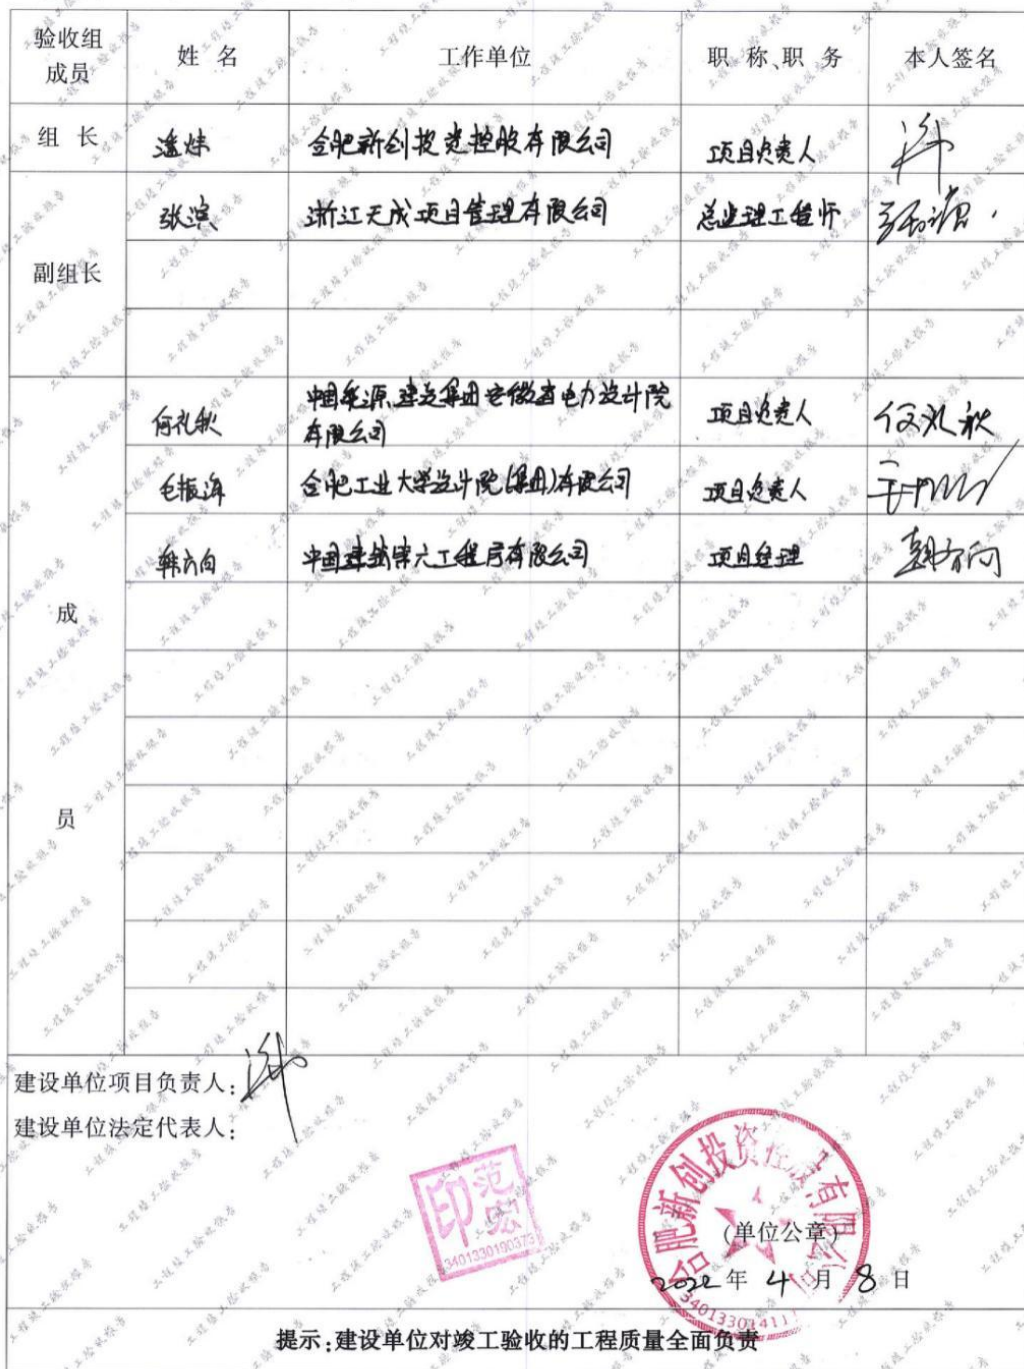 验收组 姓 名 工作单位 职 称、职 务 本人签名
成员
组 长 潘炜 合肥新创投资控股有限公司 项目负责人
张滨 浙江天成项目管理有限公司 总监理工程师
副组长
中国能源建设集团安徽省电力设计院
何礼秋 有限公司 项目负责人 何礼秋
毛振海 合肥工业大学设计院(集团)有限公司 项目负责人
韩方向 中国建筑第六工程局有限公司 项目经理 韩方向
成
员
建设单位项目负责人:
建设单位法定代表人:
范宏印
3401330190373
合肥新创投资控股有限公司
(单位公章)
2022年4月8日
提示:建设单位对竣工验收的工程质量全面负责
工程竣工验收报告